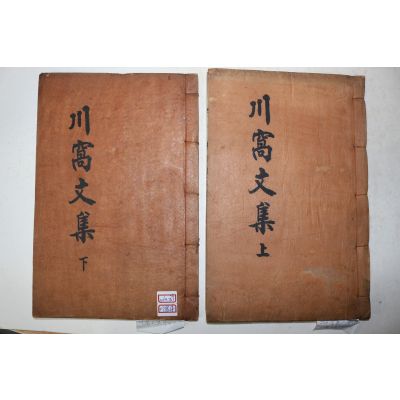 川窩文集
上
川窩文集
下